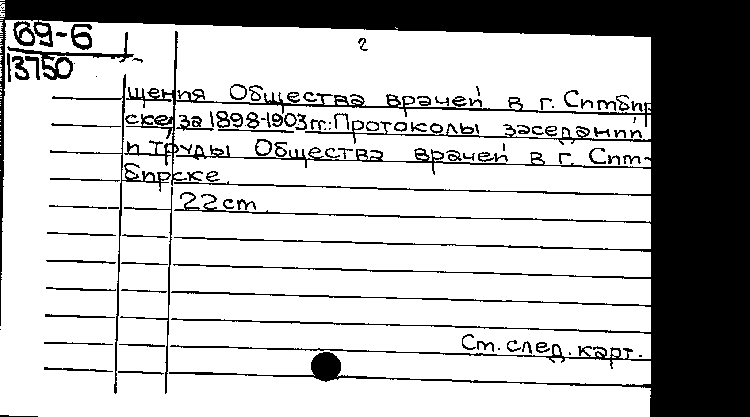 69-6
13750
2
щения Общества врачей в г. Симбир
ске, за 1898-1903 гг.: Протоколы заседаний
и труды Общества врачей в г. Сим-
бирске.
22 cm.
Cm. след. карт.